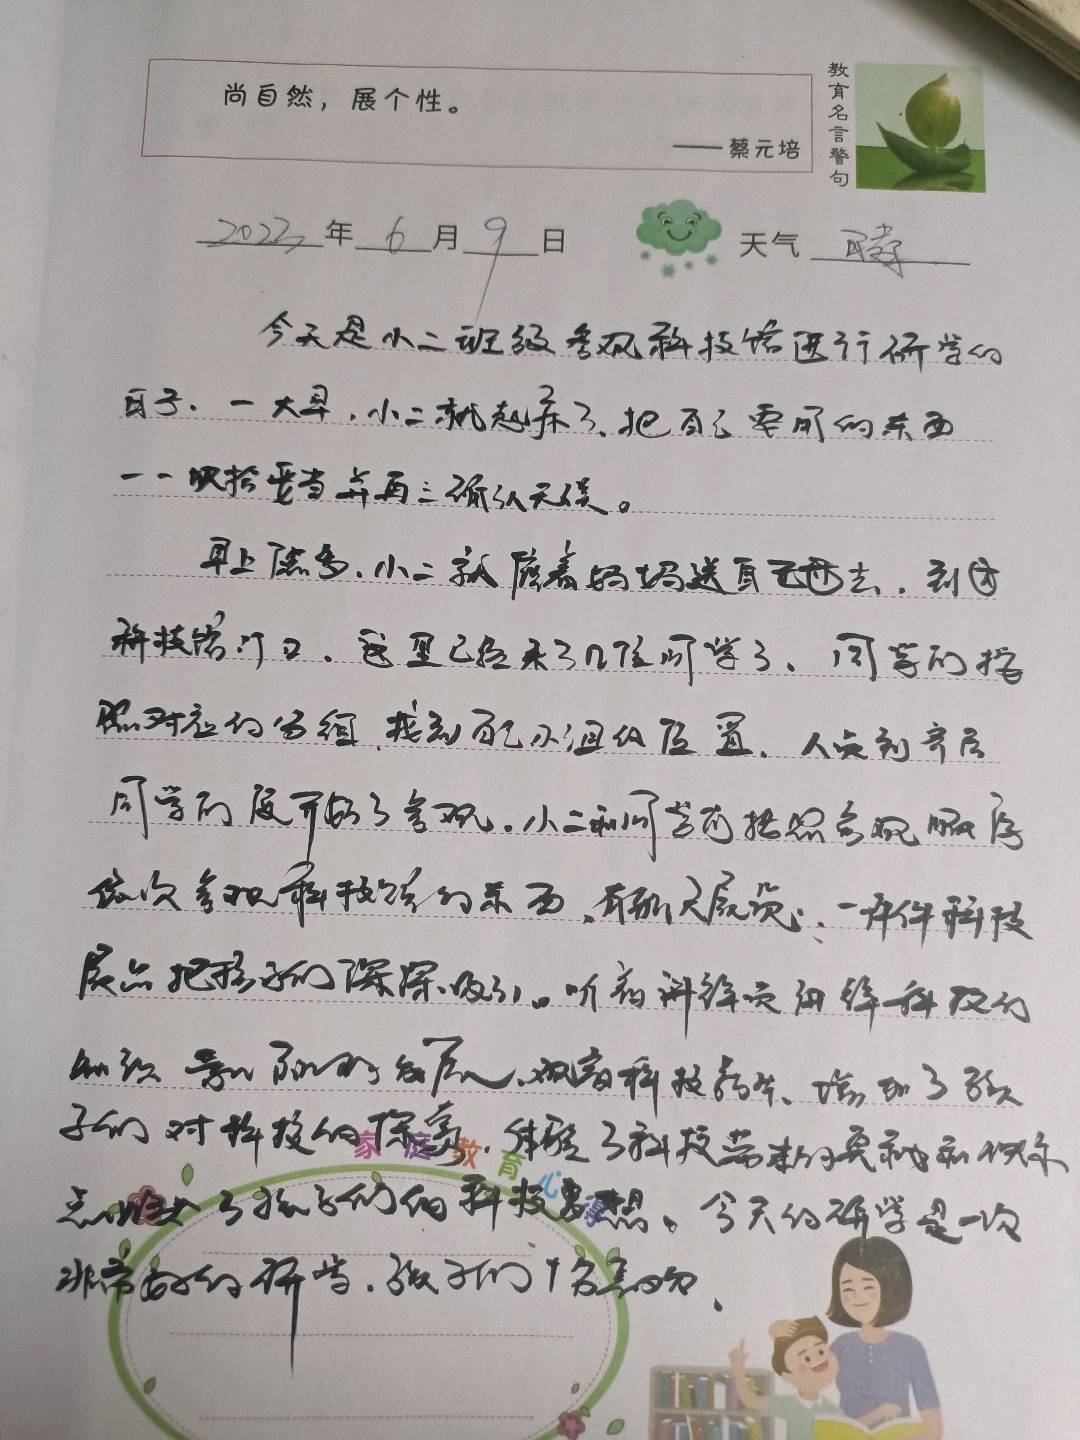 尚自然，展个性。
——蔡元培
教育名言警句
2023年6月9日
天气 晴
今天是小二班级参观科技馆进行研学的
日子、一大早，小二就起床了、把自己要用的东西
一一收拾妥当并再三确认无误。
早上 小二就 着妈妈送自己过去，到达
科技馆门口、这里已经来了几位同学了、同学们按
照对应的分组，找到自己小组的位置、人员到齐后
同学们便开始了参观。小二和同学们按照参观顺序
依次参观科技馆的东西、 一件件科技
展品把孩子们深深吸引。听着讲解员讲解科技的
知识 的发展、观看科技 、增加了孩
子们对科技的探索，体验了科技带来的 和快乐
点燃了孩子们的科技梦想、今天的研学是一次
非常好的研学，孩子们十分
家庭教育心